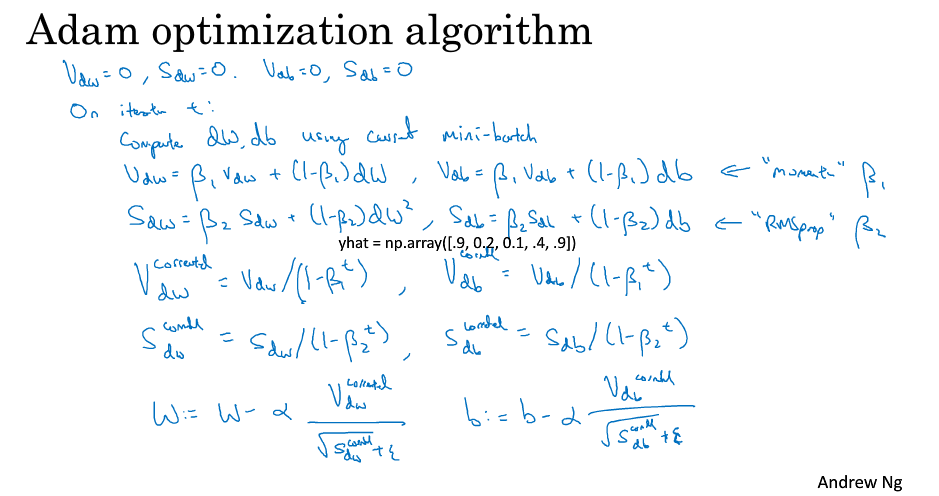 Adam optimization algorithm
V_dw = 0, S_dw = 0. V_db = 0, S_db = 0
On iteration t:
Compute dW, db using current mini-batch
V_dw = β₁ V_dw + (1-β₁) dW, V_db = β₁ V_db + (1-β₁) db ← "momentum" β₁
S_dw = β₂ S_dw + (1-β₂) dW², S_db = β₂ S_db + (1-β₂) db ← "RMSprop" β₂
yhat = np.array([.9, 0.2, 0.1, .4, .9])
V_dw^corrected = V_dw/(1-β₁^t), V_db^corrected = V_db/(1-β₁^t)
S_dw^corrected = S_dw/(1-β₂^t), S_db^corrected = S_db/(1-β₂^t)
W := W - α V_dw^corrected / (√S_dw^corrected + ε) b := b - α V_db^corrected / (√S_db^corrected + ε)
Andrew Ng